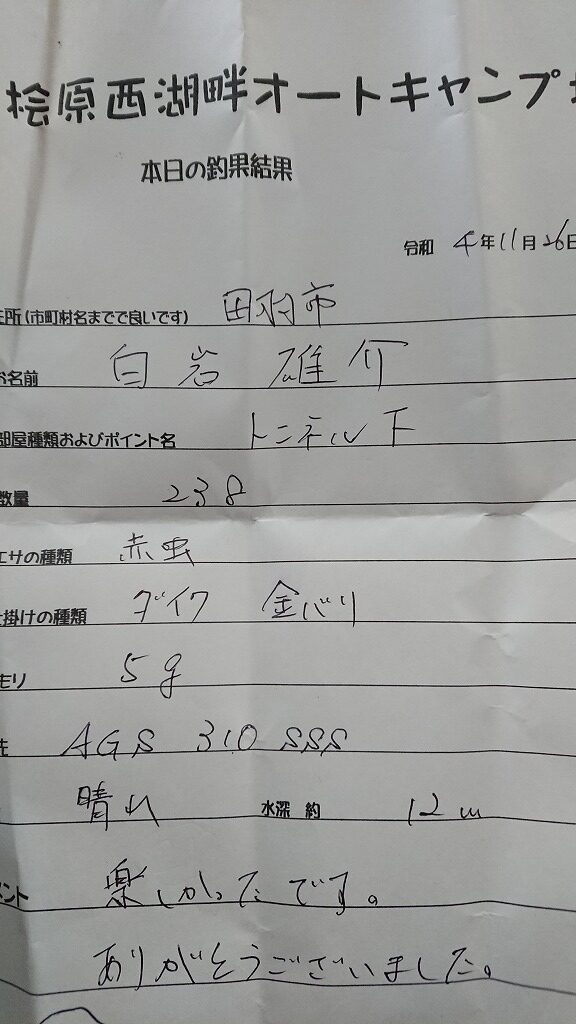 桧原西湖畔オートキャンプ
本日の釣果結果
令和 4年11月26日
住所(市町村名までで良いです) 田羽市
お名前 白岩 雄介
部屋種類およびポイント名 トンネル下
数量 238
エサの種類 赤虫
仕掛けの種類 ダイワ 金バリ
モリ 5g
AGS 310 SSS
晴れ 水深 約 12m
メント 楽しかったです。
ありがとうございました。